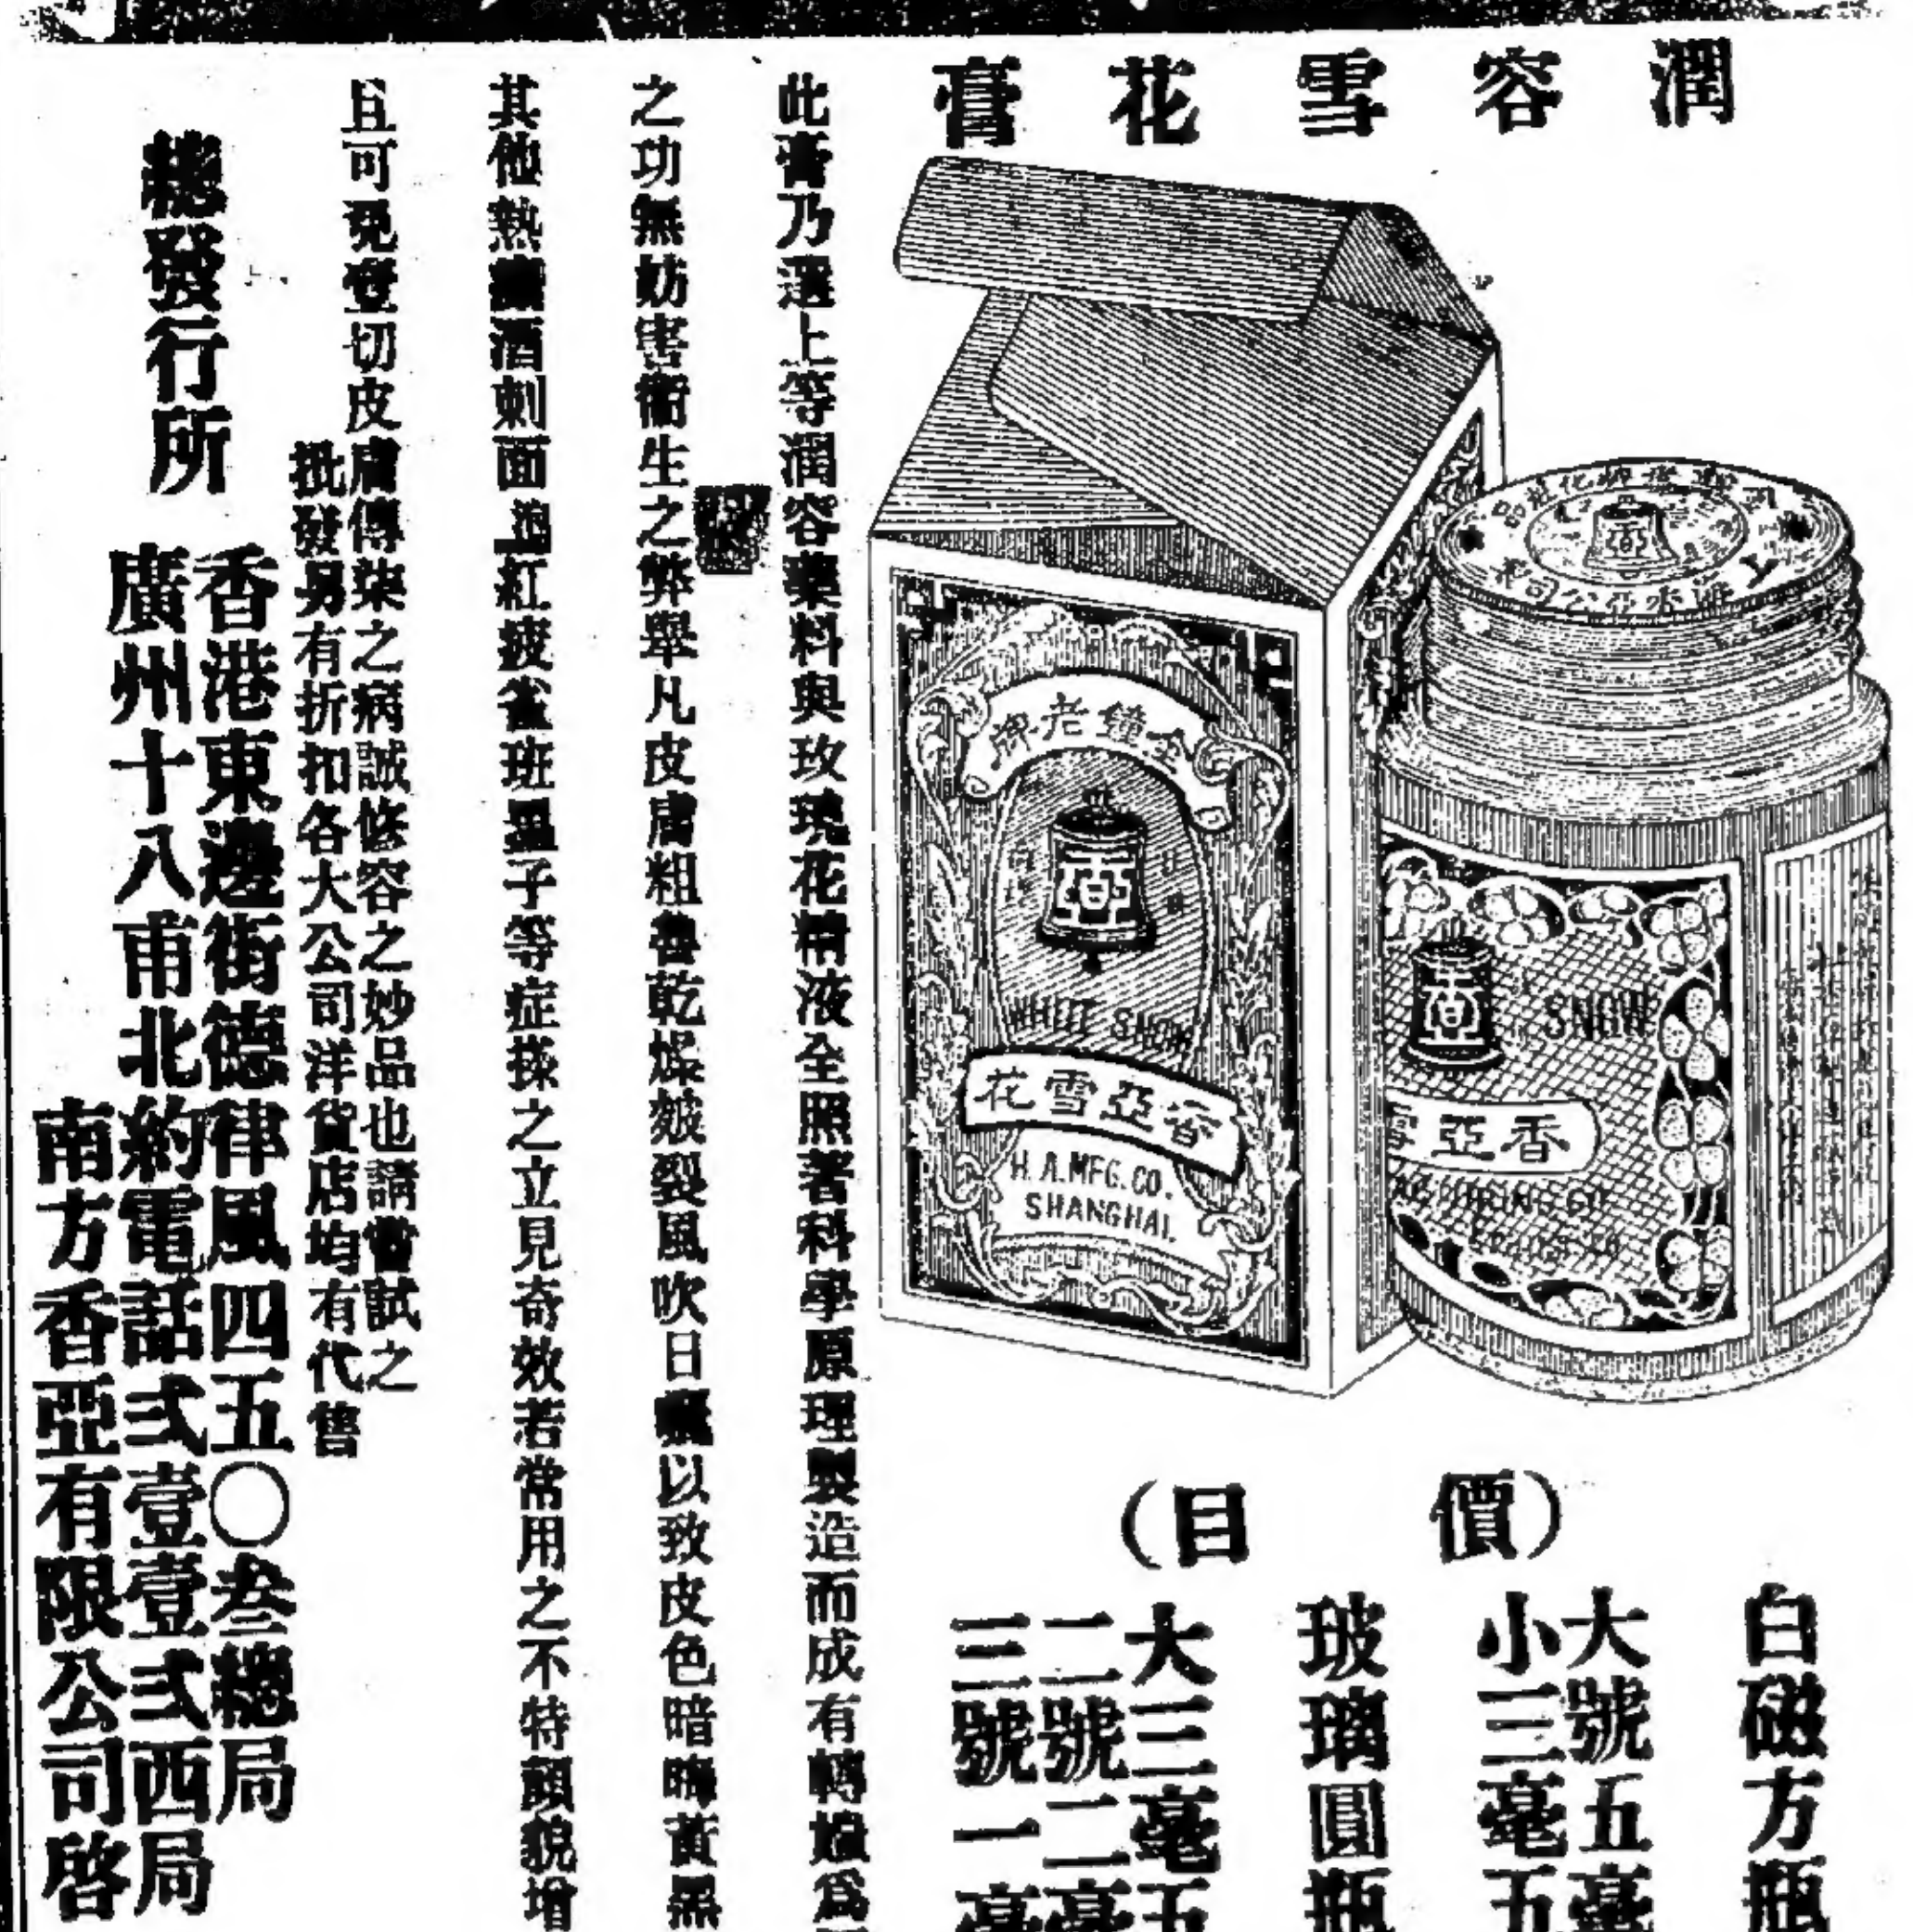 潤容雪花膏
全鐘老牌
WHITE SNOW
香亞雪花
H. A. MFG. CO.
SHANGHAI.
SNOW
香亞雪
(價目)
白磁方瓶
大號五毫
小三毫五
玻璃圓瓶
大三毫五
二號二毫
三號一毫
此膏乃選上等潤容藥料與玫瑰花精液全照著科學原理製造而成有轉媸爲
之功無妨害衞生之弊舉凡皮膚粗魯乾燥皴裂風吹日曬以致皮色暗晦黃黑
其他熱痱酒刺面上紅疲雀班墨子等症搽之立見奇效若常用之不特顏貌增
且可免壹切皮膚傳染之病誠修容之妙品也請嘗試之
批發另有折扣各大公司洋貨店均有代售
總發行所
香港東邊街德律風四五〇叁總局
廣州十八甫北約電話弍壹壹弍西局
南方香亞有限公司啓